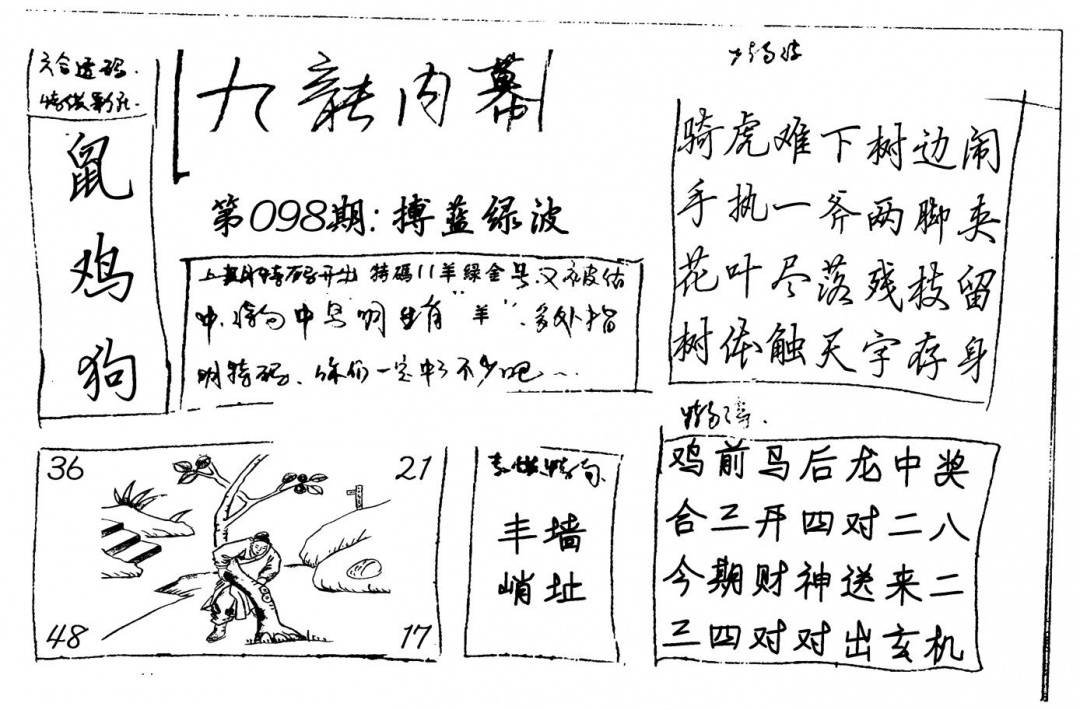 六合透码
鼠
鸡
狗
九龍内幕
第098期:搏蓝绿波
上期特码开出 特碼11羊绿金号又被估
中.中号明生肖“羊”.多处指
明特码、你们一定中了不少吧
骑虎难下树边闹
手执一斧两脚夹
花叶尽落残枝留
树依触天字存身
36
21
48
17
丰墙
峭址
鸡前马后龙中奖
合三开四对二八
今期财神送来二
三四对对出玄机